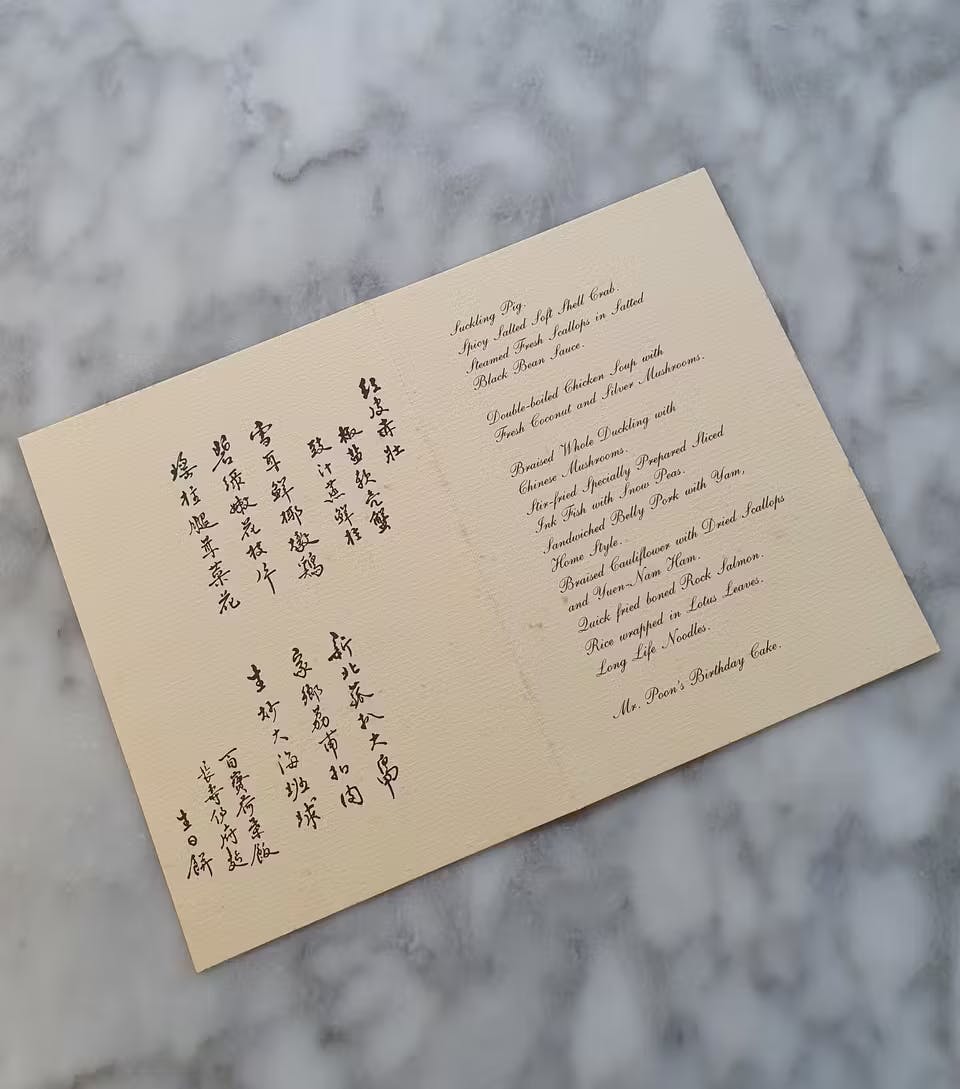 红皮赤壯
椒盐软壳蟹
豉汁蒸鮮
雪耳鮮椰燉鷄
碧綠嫩花枝片
瑤柱腿茸菜花
北菰扒大鴨
家鄉荔甫扣肉
生炒大海班球
百寶荷葉飯
長壽伊府麵
生日餅
Suckling Pig.
Spicy Salted Soft Shell Crab.
Steamed Fresh Scallops in Salted
Black Bean Sauce.
Double-boiled Chicken Soup with
Fresh Coconut and Silver Mushrooms.
Braised Whole Duckling with
Chinese Mushrooms.
Stir-fried Specially Prepared Sliced
Ink Fish with Snow Peas.
Sandwiched Belly Pork with Yam,
Home Style.
Braised Cauliflower with Dried Scallops
and Yuen-Nam Ham.
Quick fried boned Rock Salmon.
Rice wrapped in Lotus Leaves.
Long Life Noodles.
Mr. Poon's Birthday Cake.